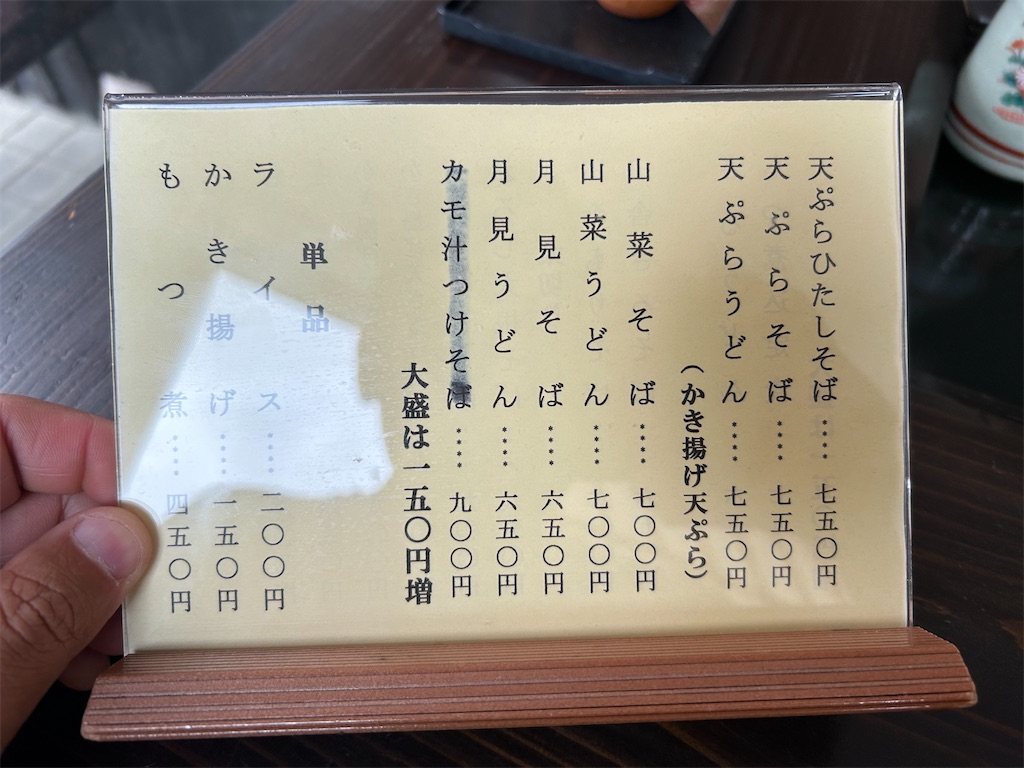 天ぷらひたしそば‥‥七五〇円
天ぷらそば‥‥七五〇円
天ぷらうどん‥‥七五〇円
(かき揚げ天ぷら)
山菜そば‥‥七〇〇円
山菜うどん‥‥七〇〇円
月見そば‥‥六五〇円
月見うどん‥‥六五〇円
カモ汁つけそば‥‥九〇〇円
大盛は一五〇円増
単品
ライス‥‥二〇〇円
かき揚げ‥‥一五〇円
もつ煮‥‥四五〇円